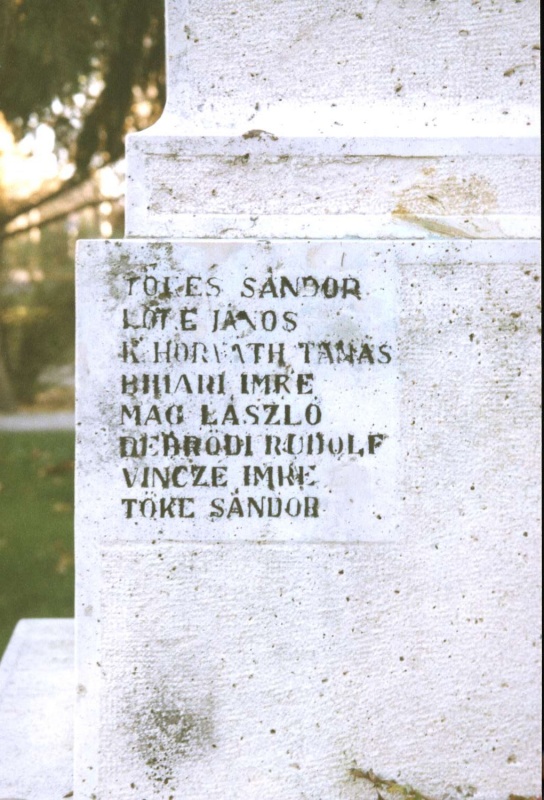 TÖLES SÁNDOR
LŐTE JÁNOS
K HORVÁTH TAMÁS
BIHARI IMRE
MAG LÁSZLÓ
DEBRŐDI RUDOLF
VINCZE IMRE
TŐKE SÁNDOR